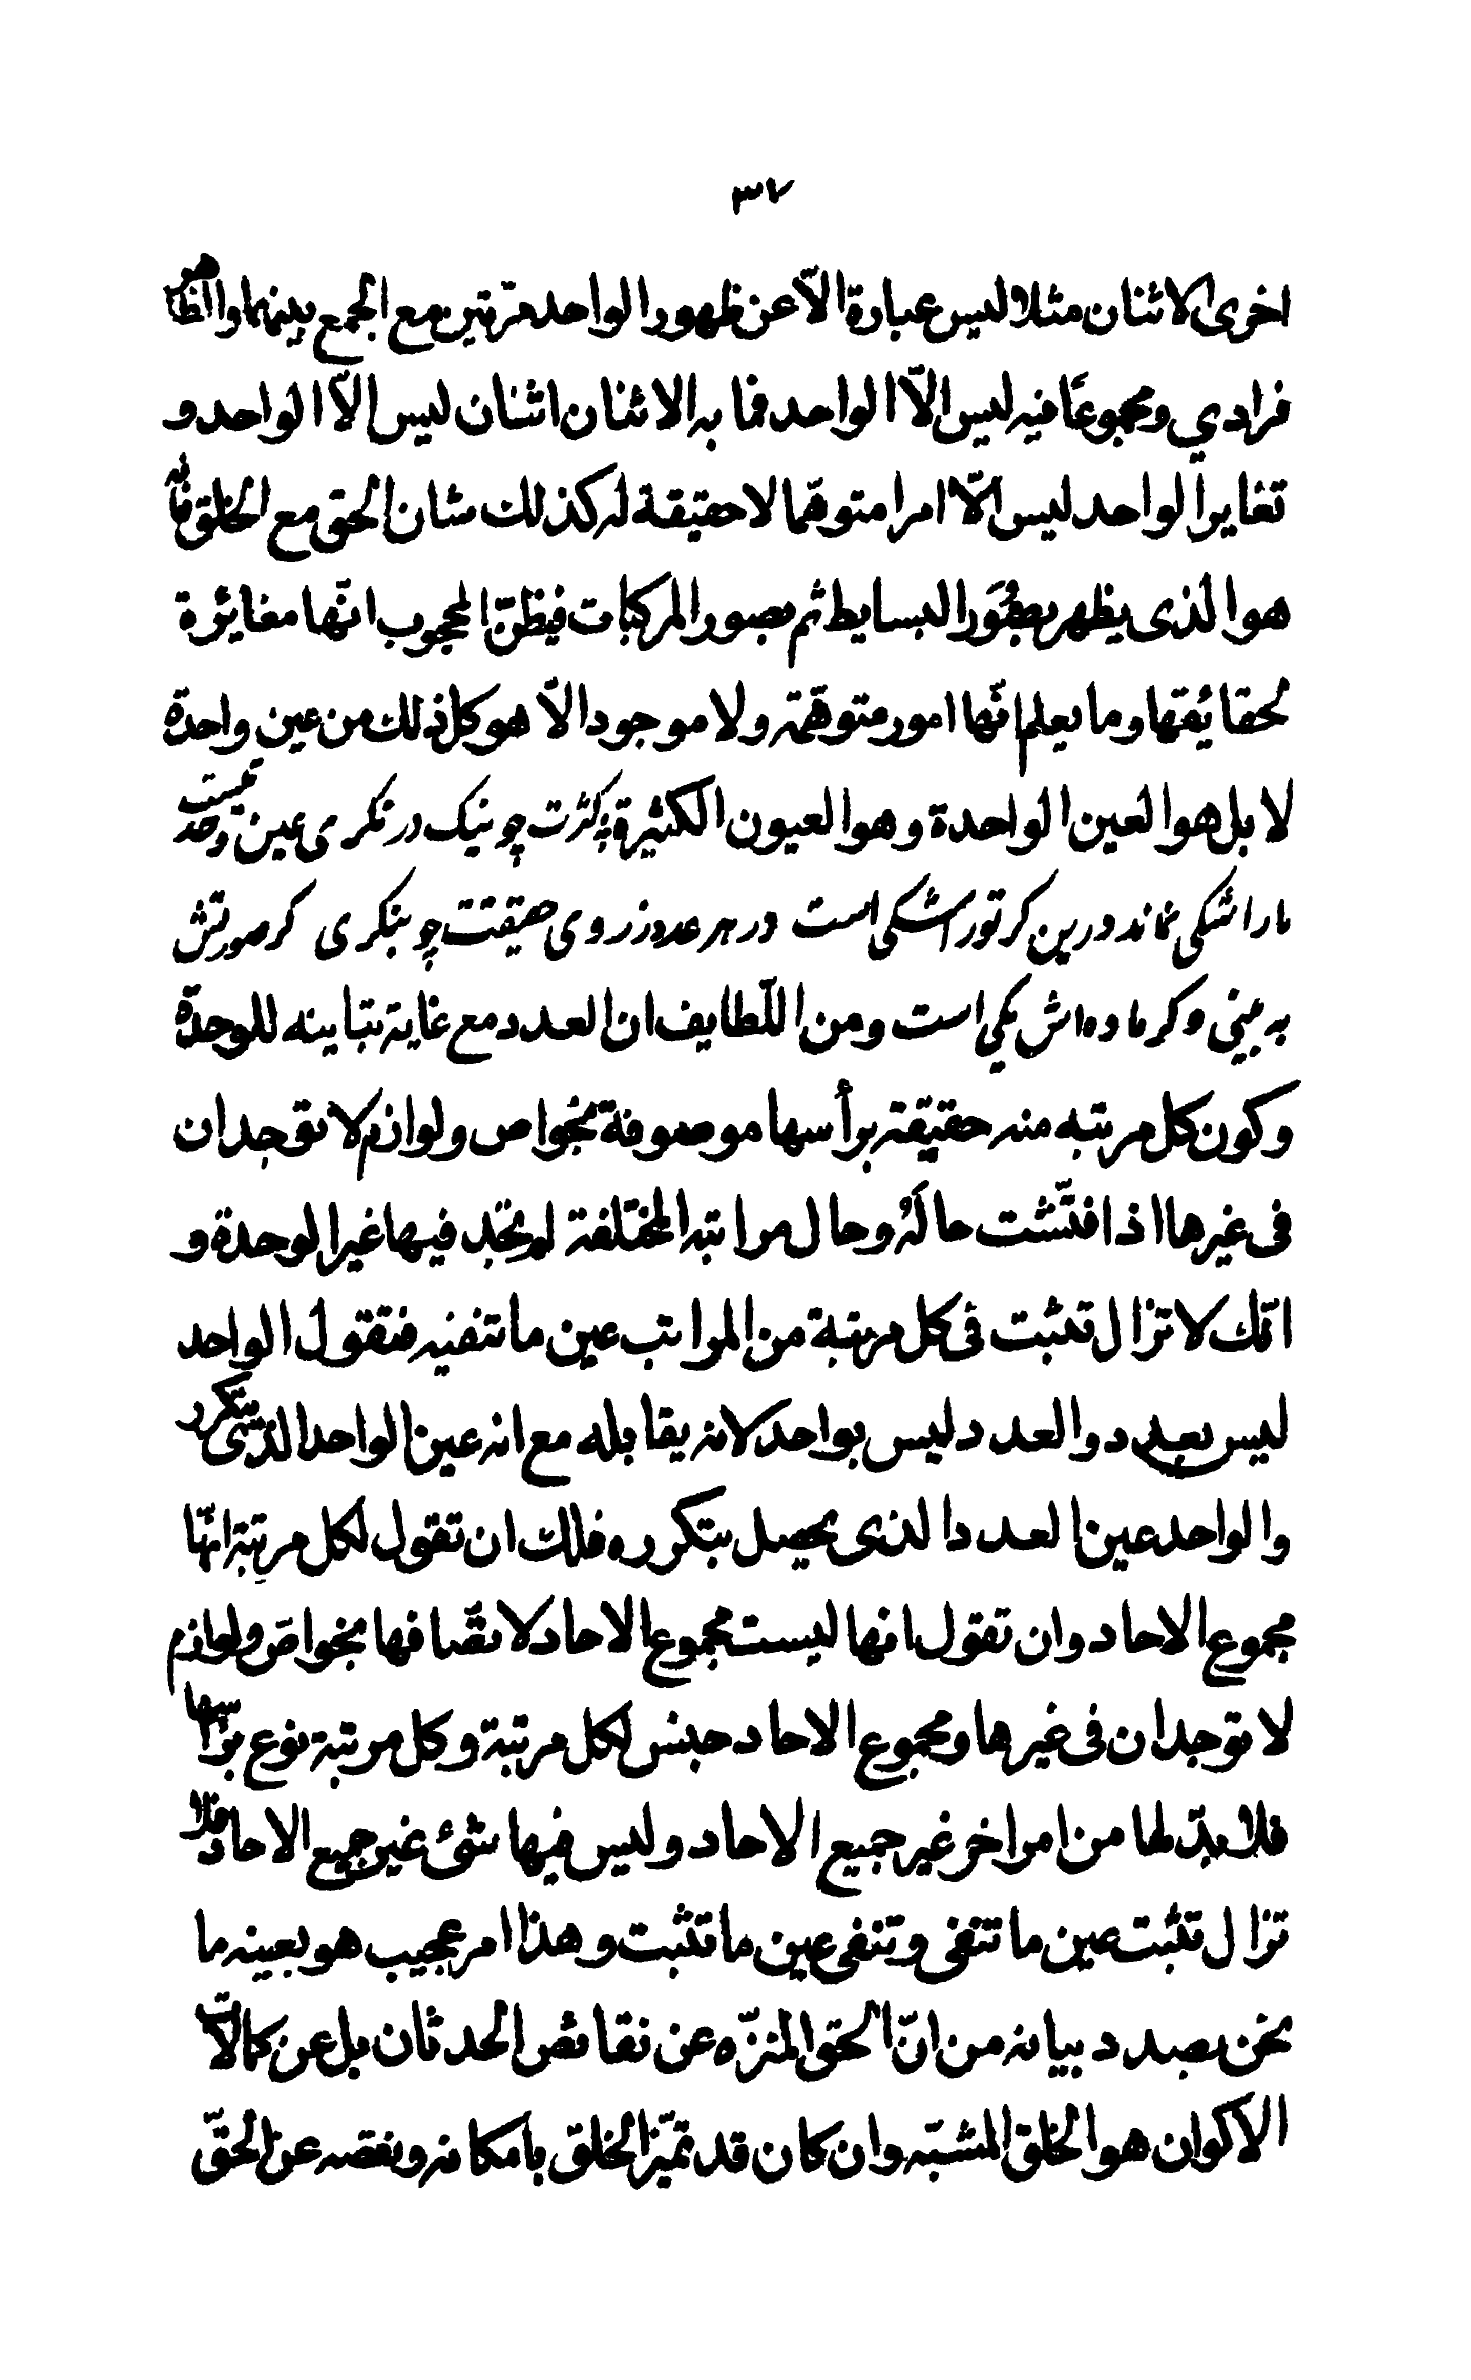 ٣٧
اخرى الاثنان مثلا ليس عبارة الّا عن ظهور الواحد مرّتين مع الجمع بينهما والظاهر
فرادي ومجموعًا فيه ليس الّا الواحد فما به الاثنان اثنان ليس الّا الواحد و
تغاير الواحد ليس الّا امرا متوهّما لا حقيقة له كذلك شان الحق مع الخلق فانه
هو الذى يظهر بصُوَر البسايط ثم بصور المركبات فيظنّ المحجوب انّها مغائرة
لحقايقها وما يعلم انّها امور متوهّمة ولا موجود الّا هو كل ذلك من عين واحدة
لا بل هو العين الواحدة وهو العيون الكثيرة كثرت چو نيك در نكرى عين وحدتيست
مارا شكى نماند درين كر تورا شكى است در هر عدد ز روى حقيقت چو بنكرى كر صورتش
به بينى و كر ماده اش يكى است ومن اللّطايف ان العدد مع غاية تباينه للوحدة
وكون كل مرتبه منه حقيقة برأسها موصوفة بخواص ولوازم لا توجدان
فى غيرها اذا فتّشت حالَهُ وحال مراتبه المختلفة لم تجد فيها غير الوحدة و
انّك لا تزال تثبت فى كل مرتبة من المراتب عين ما تنفيه فتقول الواحد
ليس بعدد والعدد ليس بواحد لانه يقابله مع انه عين الواحد الذى يتكرر
والواحد عين العدد الذى يحصل بتكرره فلك ان تقول لكل مرتبة انّها
مجموع الاحاد وان تقول انها ليست مجموع الاحاد لاتّصافها بخواصّ ولوازم
لا توجدان فى غيرها ومجموع الاحاد جنس لكل مرتبة وكل مرتبة نوع براسها
فلا بدّ لها من امر اخر غير جميع الاحاد وليس فيها شئ غير جميع الاحاد فلا
تزال تثبت عين ما تنفى وتنفى عين ما تثبت وهذا امر عجيب هو بعينه ما
نحن بصدد بيانه من انّ الحق المنزّه عن نقائص الحدثان بل عن كمالات
الاكوان هو الخلق المشبّه وان كان قد تميّز الخلق بامكانه ونقصه عن الحقّ